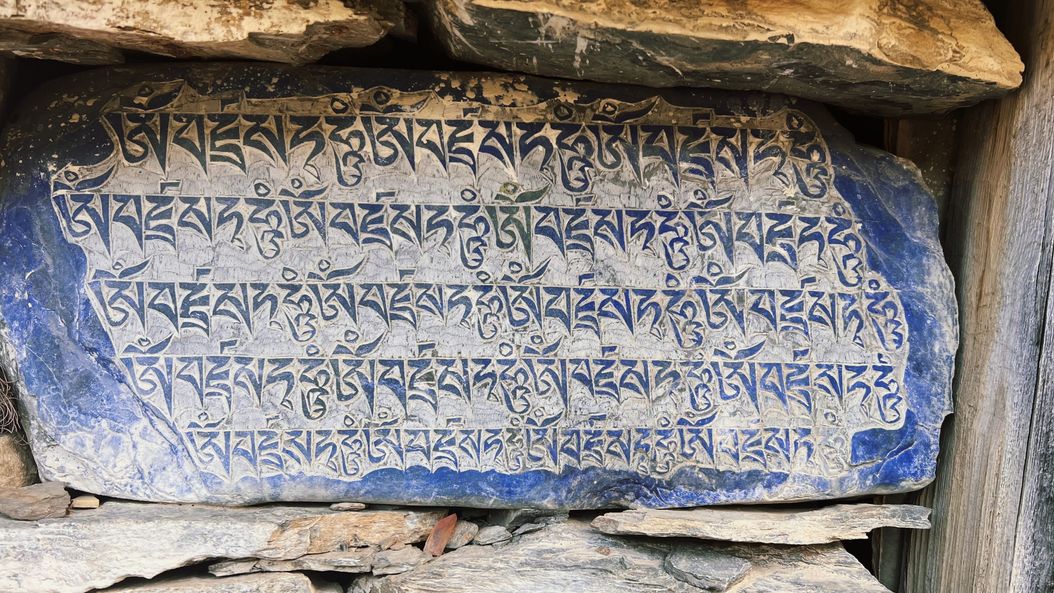 ཨོཾ་བཛྲ་སཏྭ་ཧཱུྃ་ཨོཾ་བཛྲ་སཏྭ་ཧཱུྃ་ཨོཾ་བཛྲ་སཏྭ་ཧཱུྃ
ཨོཾ་བཛྲ་སཏྭ་ཧཱུྃ་ཨོཾ་བཛྲ་སཏྭ་ཧཱུྃ་ཨོཾ་བཛྲ་སཏྭ་ཧཱུྃ་ཨོཾ་བཛྲ་སཏྭ་ཧཱུྃ
ཨོཾ་བཛྲ་སཏྭ་ཧཱུྃ་ཨོཾ་བཛྲ་སཏྭ་ཧཱུྃ་ཨོཾ་བཛྲ་སཏྭ་ཧཱུྃ་ཨོཾ་བཛྲ་སཏྭ་ཧཱུྃ
ཨོཾ་བཛྲ་སཏྭ་ཧཱུྃ་ཨོཾ་བཛྲ་སཏྭ་ཧཱུྃ་ཨོཾ་བཛྲ་སཏྭ་ཧཱུྃ་ཨོཾ་བཛྲ་སཏྭ་ཧཱུྃ
ཨོཾ་བཛྲ་སཏྭ་ཧཱུྃ་ཨོཾ་བཛྲ་སཏྭ་ཧཱུྃ་ཨོཾ་བཛྲ་སཏྭ་ཧཱུྃ་ཨོཾ་བཛྲ་སཏྭ་ཧཱུྃ